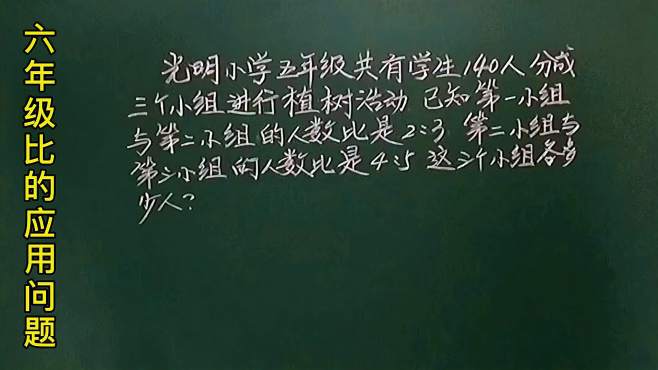 六年级比的应用问题
光明小学五年级共有学生140人分成
三个小组进行植树活动 已知第一小组
与第二小组的人数比是2:3 第二小组与
第三小组的人数比是4:5 这三个小组各多
少人?